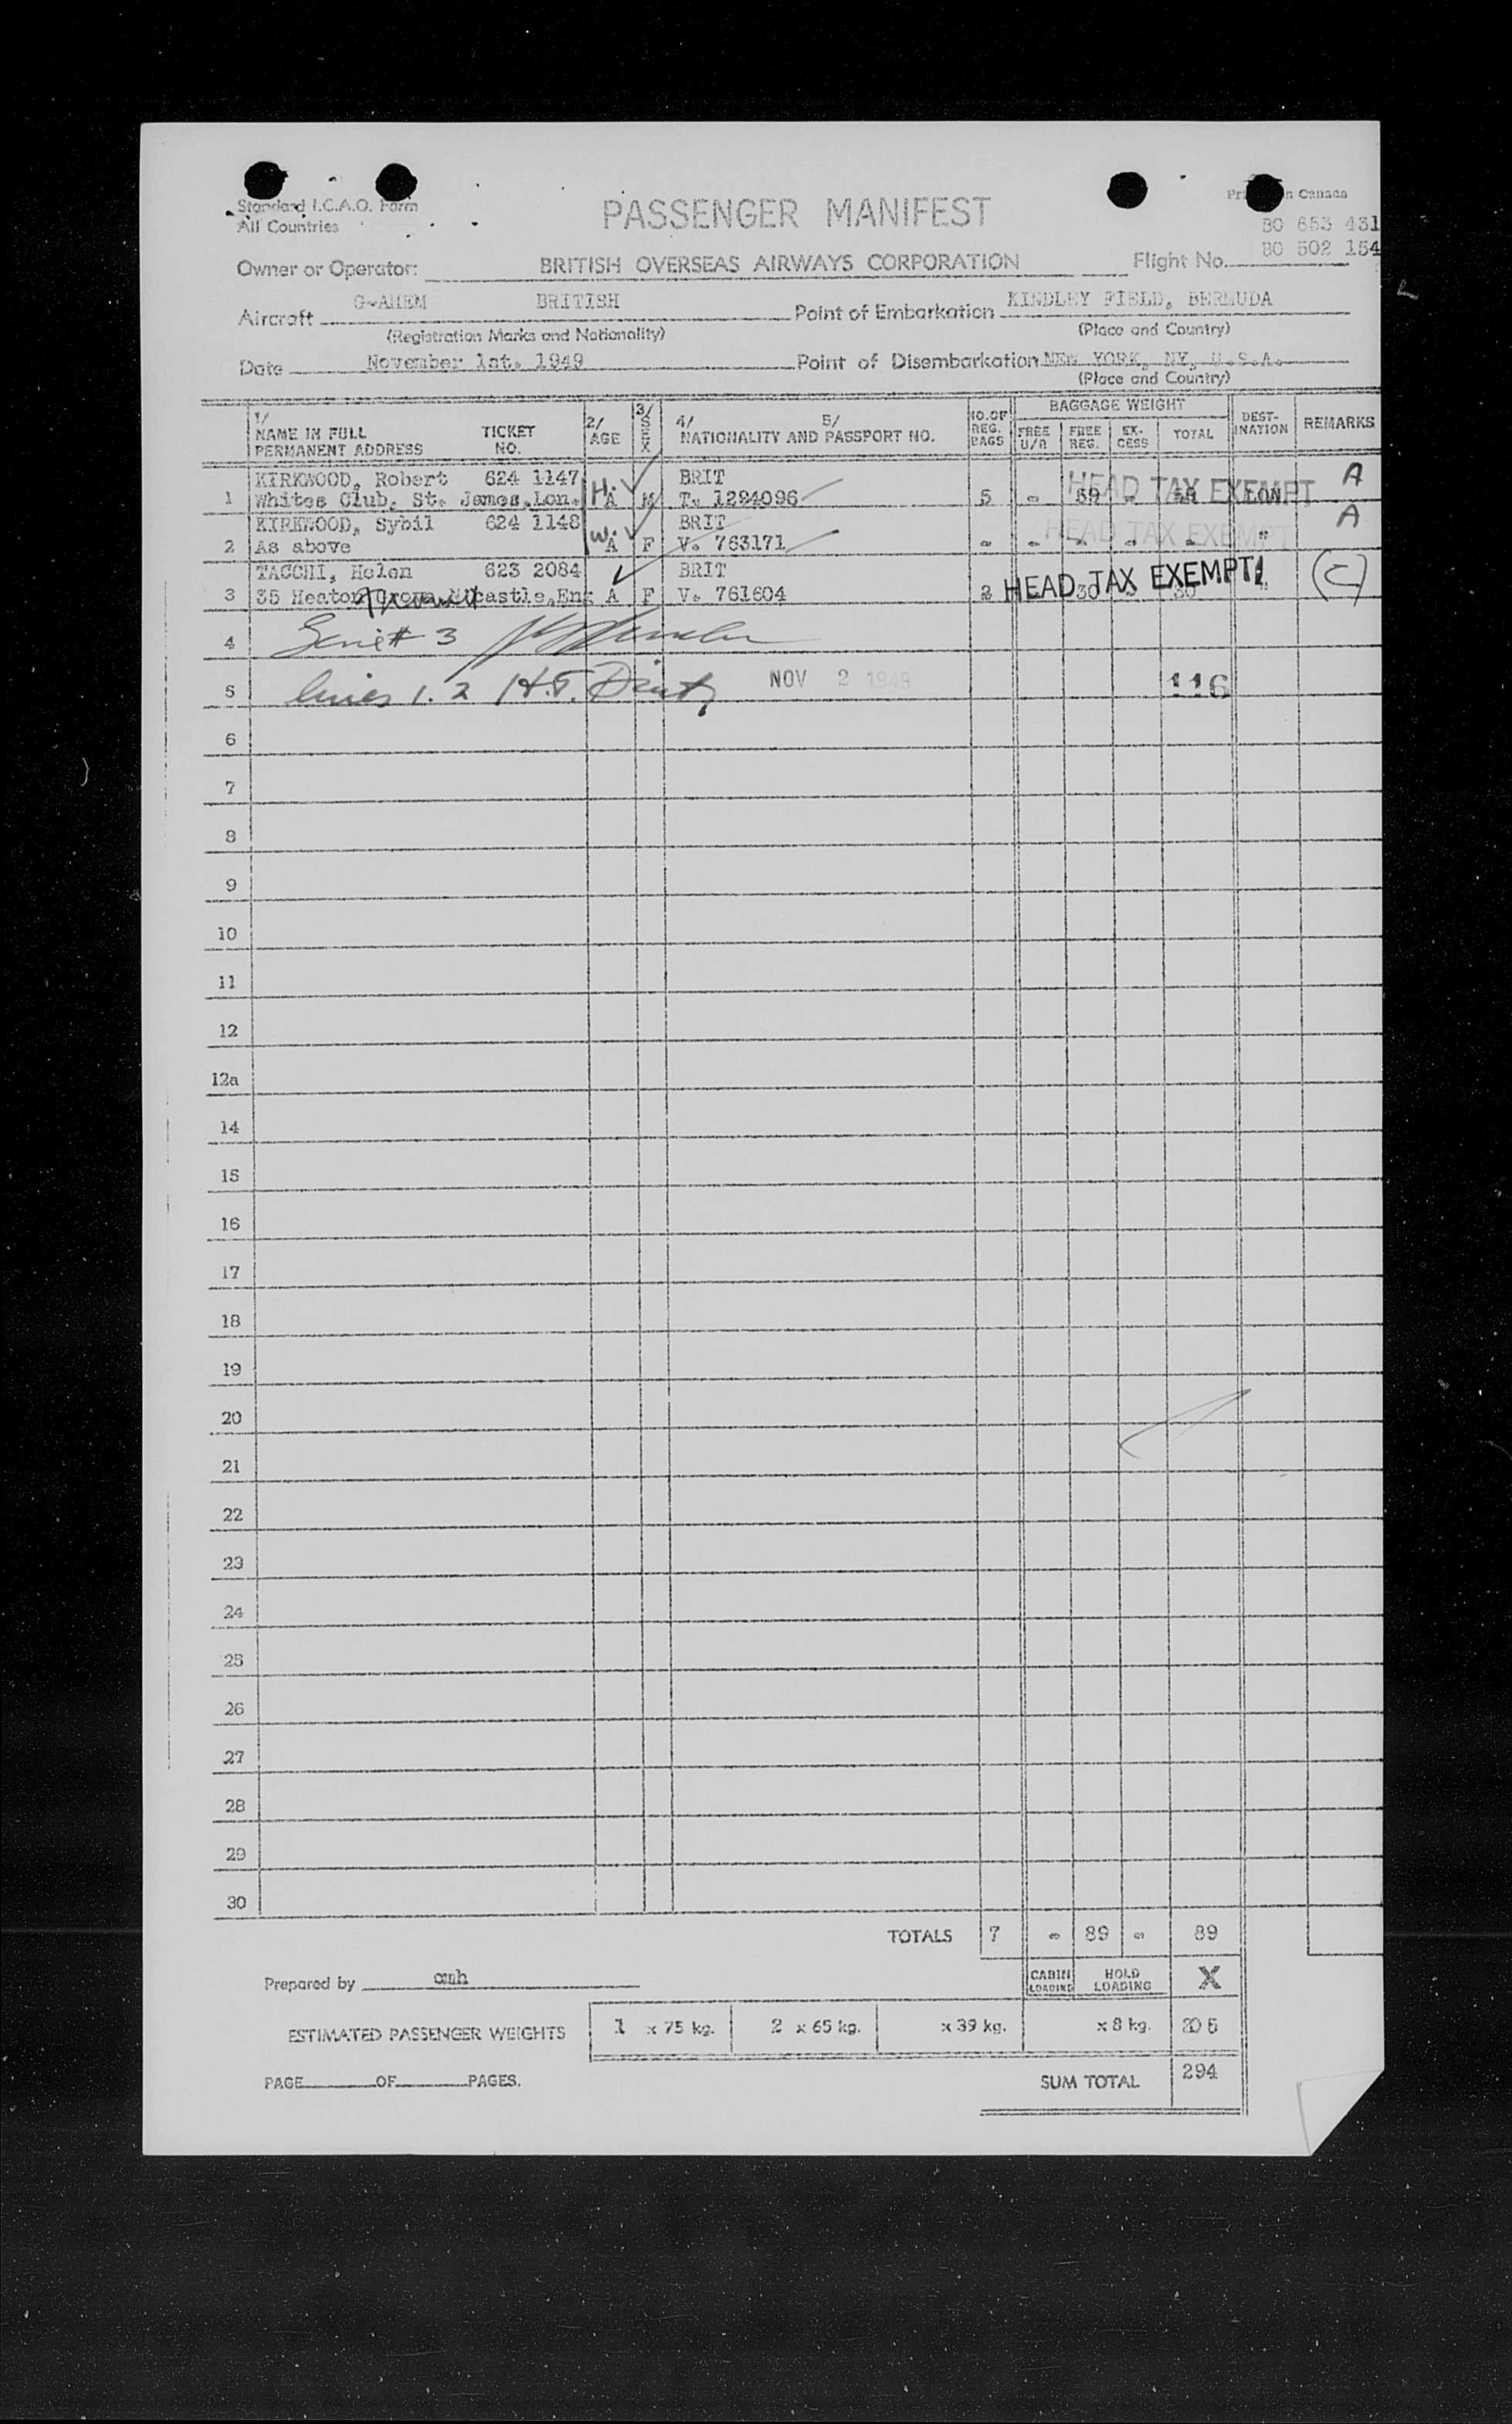 Standard I.C.A.O. Form
All Countries
PASSENGER MANIFEST
Canada
BO 653 431
BO 502 154
Owner or Operator: BRITISH OVERSEAS AIRWAYS CORPORATION Flight No.
Aircraft G-AHEM BRITISH Point of Embarkation KINDLEY FIELD, BERMUDA
(Registration Marks and Nationality) (Place and Country)
Date November 1st. 1949 Point of Disembarkation NEW YORK, NY, U.S.A.
(Place and Country)
1/ NAME IN FULL PERMANENT ADDRESS TICKET NO. 2/ AGE 3/ SEX 4/ 5/ NATIONALITY AND PASSPORT NO. NO. OF REG. BAGS BAGGAGE WEIGHT FREE U/A FREE REG. EX-CESS TOTAL DEST-INATION REMARKS
KIRKWOOD, Robert 624 1147 H. BRIT HEAD TAX EXEMPT A
1 Whites Club, St. James, Lon. A M T. 1224096 5 - 59 - 59 LON
KIRKWOOD, Sybil 624 1148 W. BRIT HEAD TAX EXEMPT A
2 As above A F V. 763171 - - - - - "
TACCHI, Helen 623 2084 BRIT HEAD TAX EXEMPT (C)
3 35 Heaton Grove, Ncastle, Eng A F V. 761604 2 30 - 30 "
4 Line # 3
5 lines 1. 2 H.T. NOV 2 1949 116
6
7
8
9
10
11
12
12a
14
15
16
17
18
19
20
21
22
23
24
25
26
27
28
29
30
TOTALS 7 - 89 - 89
Prepared by cmh CABIN LOADING HOLD LOADING X
ESTIMATED PASSENGER WEIGHTS 1 x 75 kg. 2 x 65 kg. x 39 kg. x 8 kg. 205
PAGE OF PAGES. SUM TOTAL 294